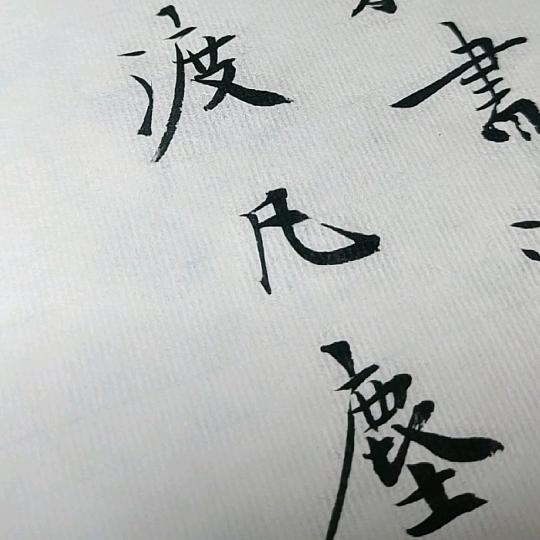 書
渡凡塵